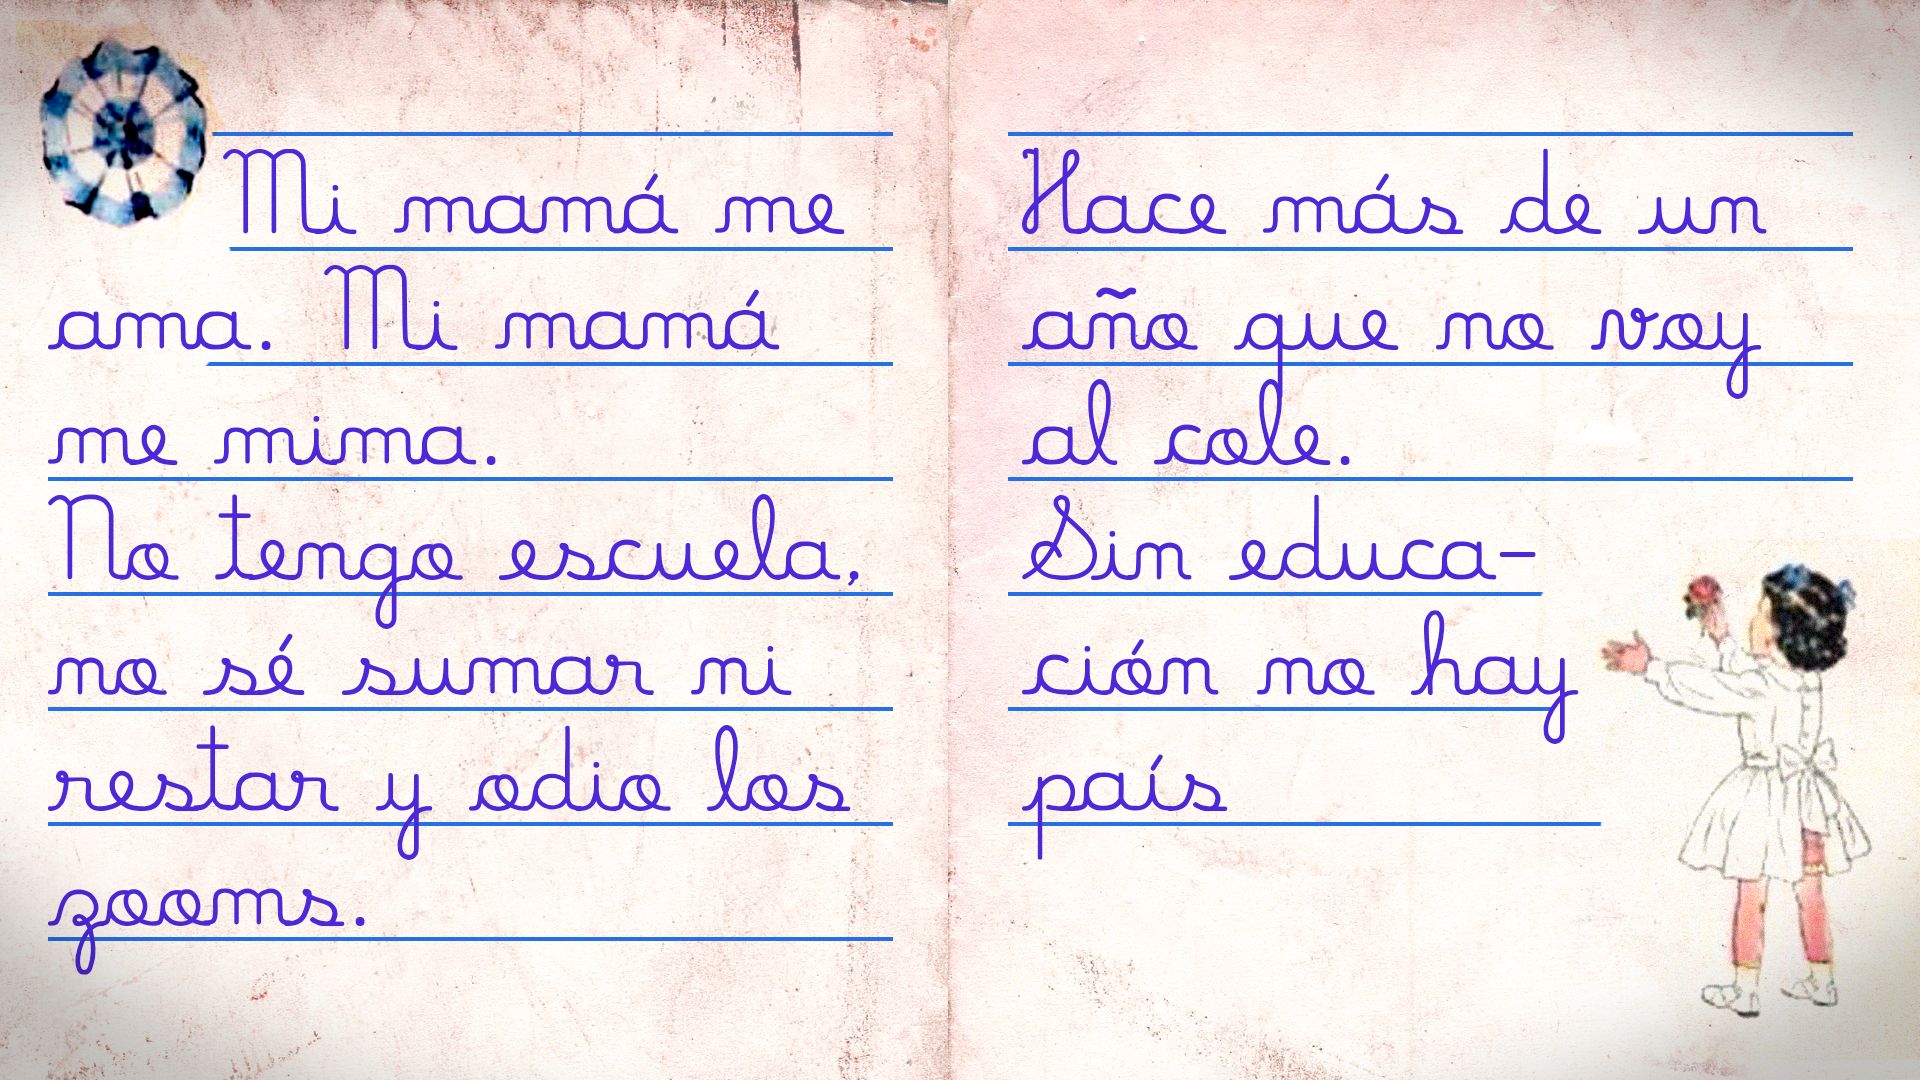 Mi mamá me
ama. Mi mamá
me mima.
No tengo escuela,
no sé sumar ni
restar y odio los
zooms.
Hace más de un
año que no voy
al cole.
Sin educa-
ción no hay
país